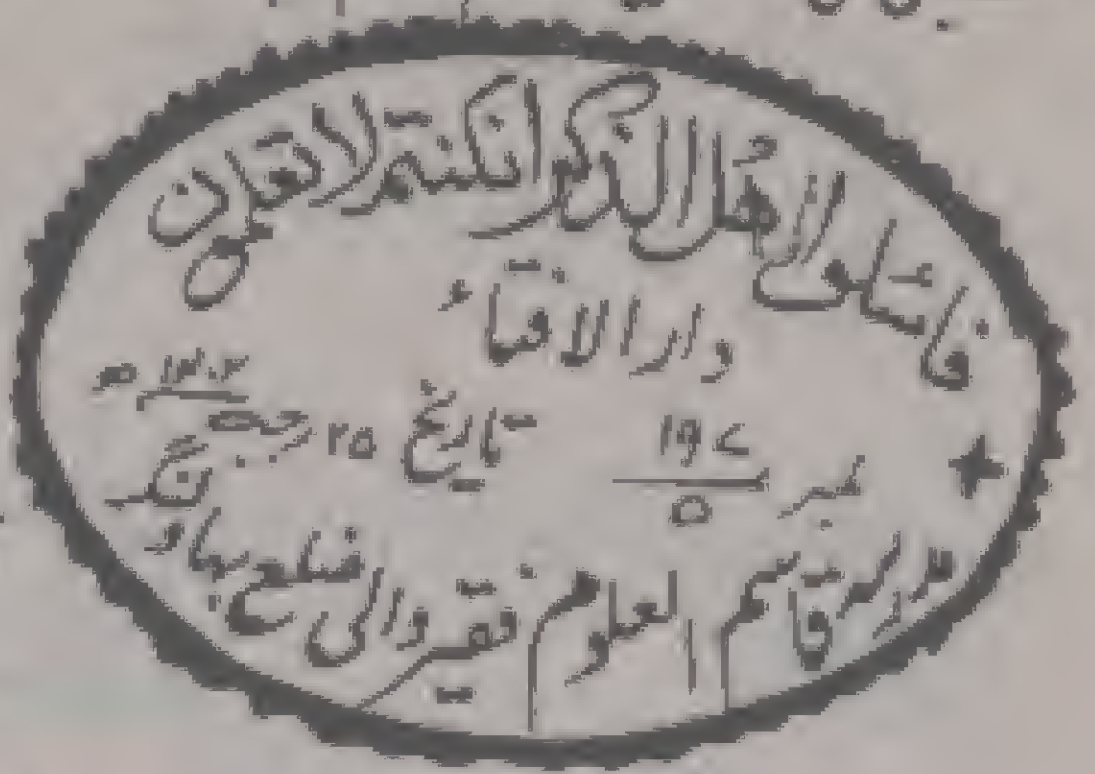 فاسئلوا اهل الذكر ان كنتم لا تعلمون
دار الافتاء
نمبر ۱۹۷/۵ تاریخ ۲۵ رجب
مدرسہ قاسم العلوم فقیر والی ضلع بہاولنگر